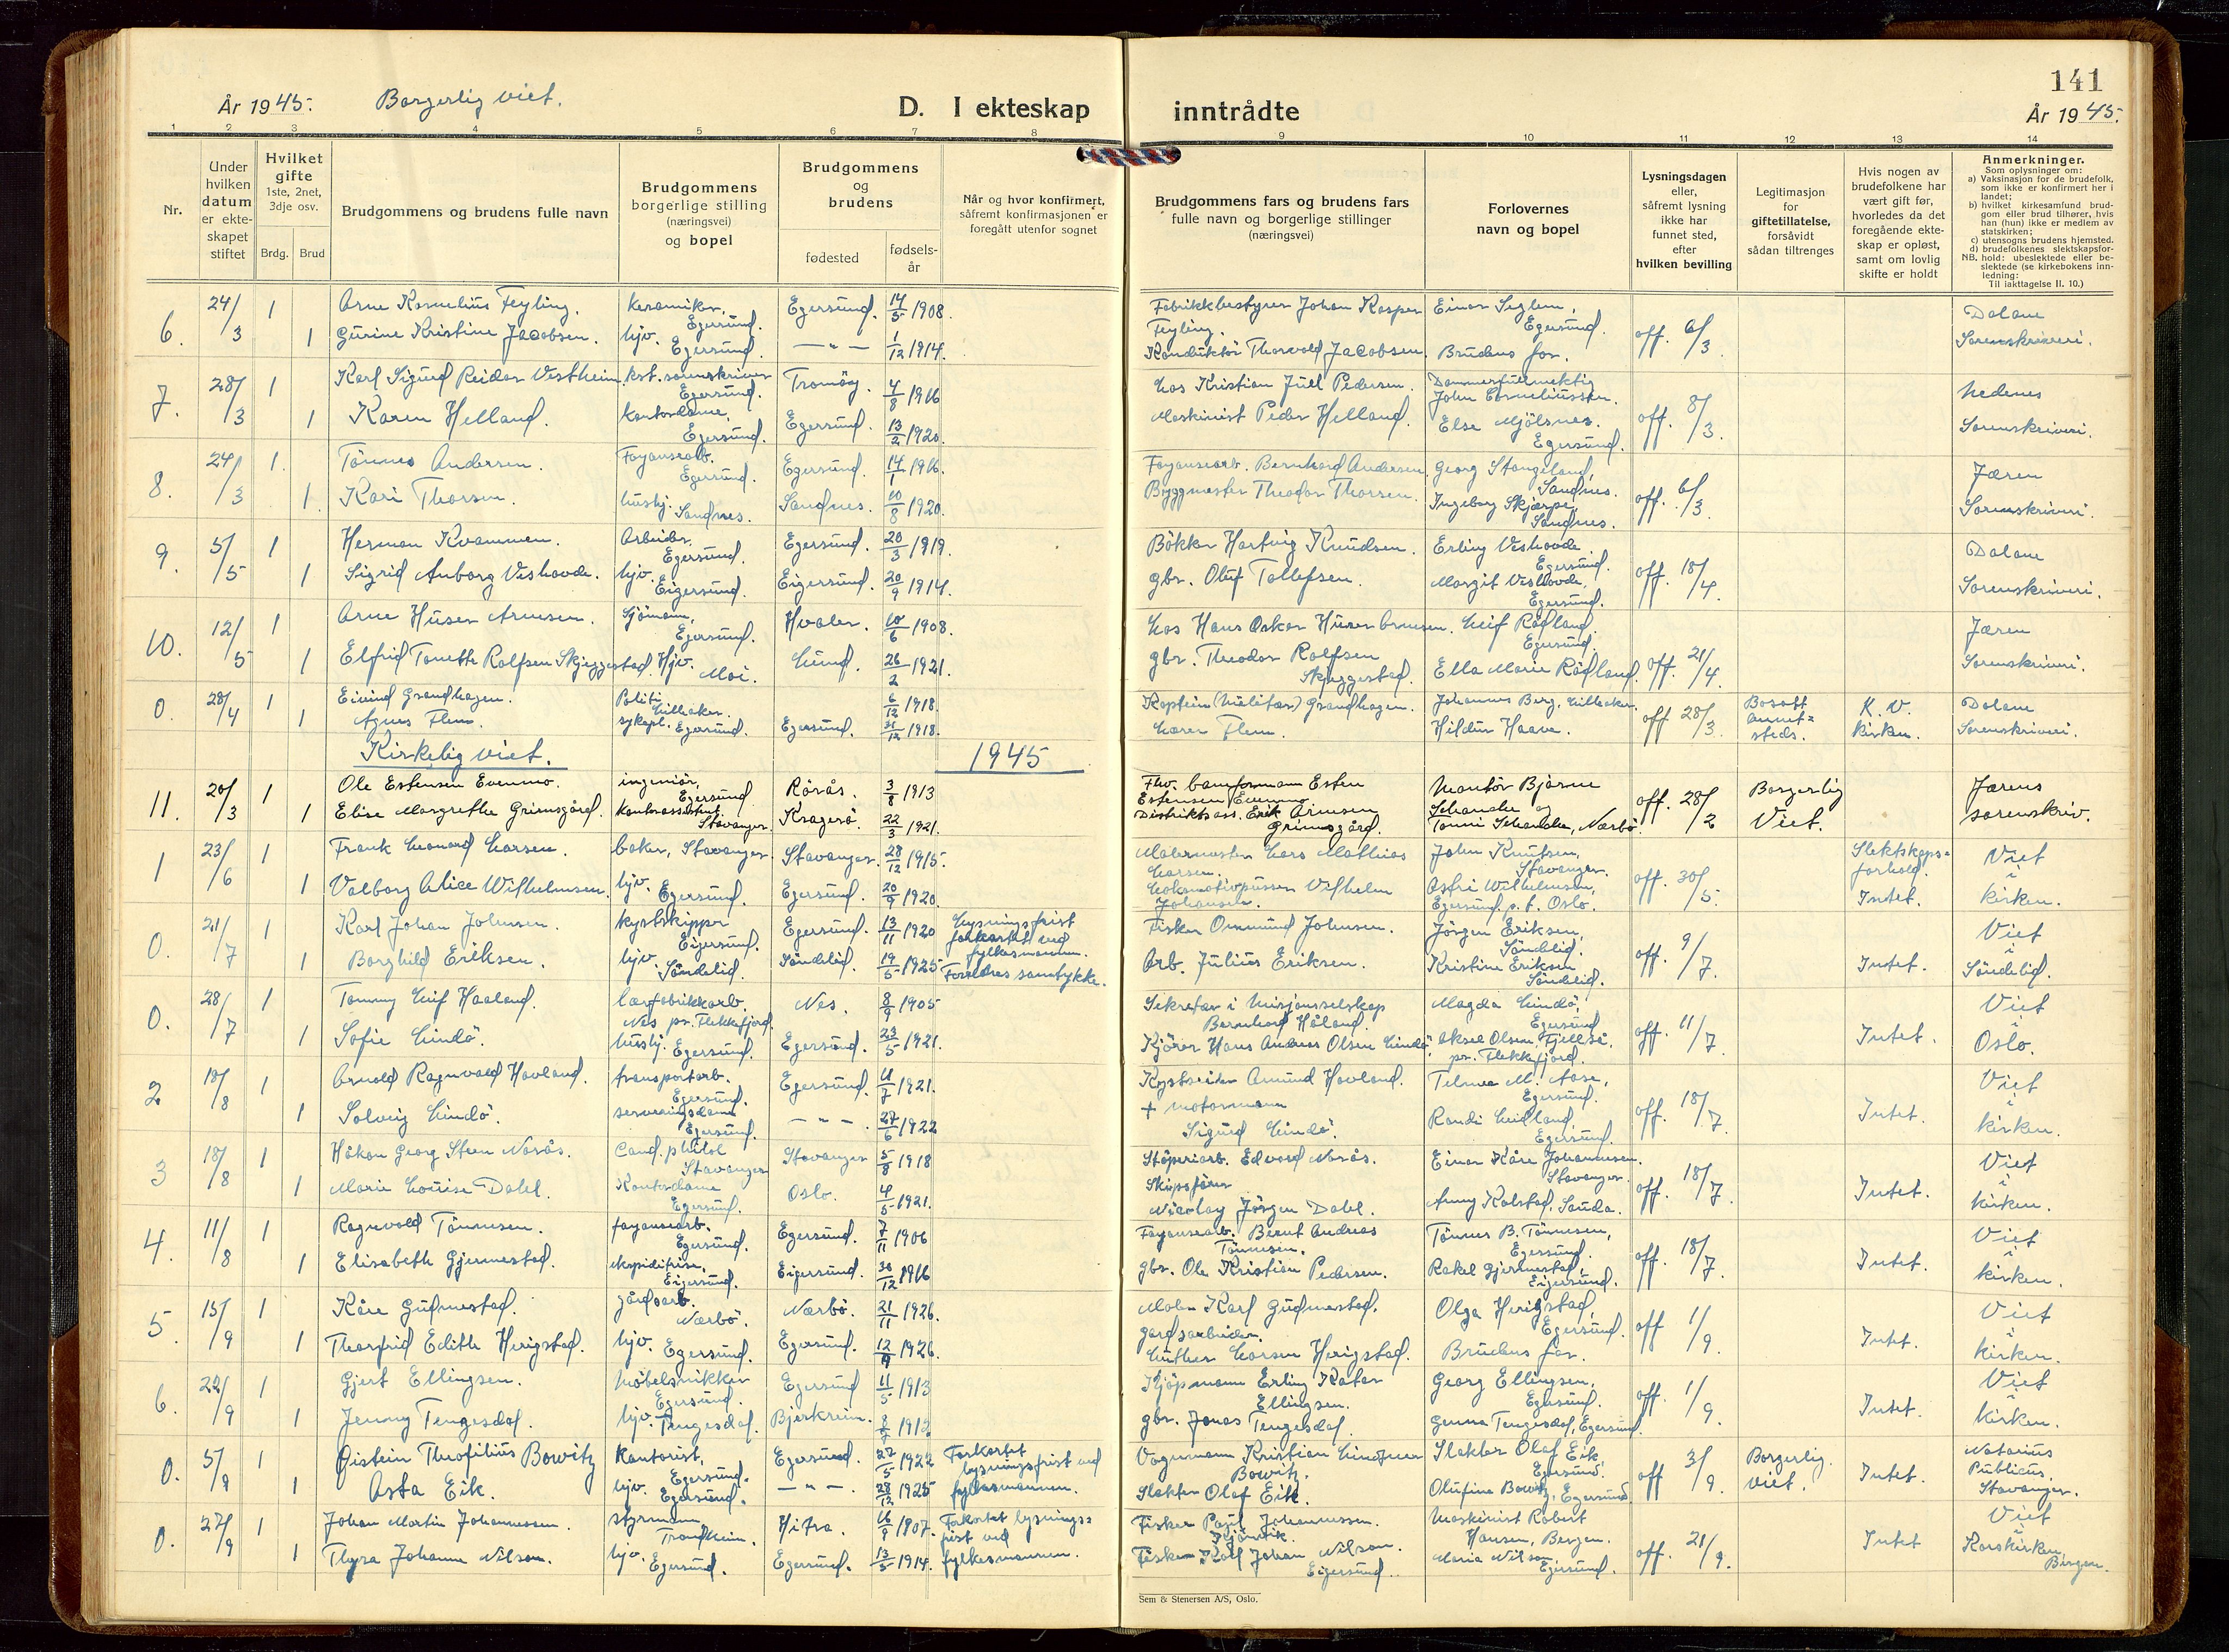 141
År 1945.
Borgerlig viet.
D. I ekteskap
inntrådte
År 1945.
1 2 3 4 5 6 7 8 9 10 11 12 13 14
Nr.
Under hvilken datum er ekteskapet stiftet
Hvilket gifte 1ste, 2net, 3dje osv.
Brdg. Brud
Brudgommens og brudens fulle navn
Brudgommens borgerlige stilling (næringsvei) og bopel
Brudgommens og brudens
fødested
fødsels-år
Når og hvor konfirmert, såfremt konfirmasjonen er foregått utenfor sognet
Brudgommens fars og brudens fars fulle navn og borgerlige stillinger (næringsvei)
Forlovernes navn og bopel
Lysningsdagen eller, såfremt lysning ikke har funnet sted, efter hvilken bevilling
Legitimasjon for giftetillatelse, forsåvidt sådan tiltrenges
Hvis nogen av brudefolkene har vært gift før, hvorledes da det foregående ekteskap er opløst, samt om lovlig skifte er holdt
Anmerkninger.
Som oplysninger om:
a) Vaksinasjon for de brudefolk, som ikke er konfirmert her i landet;
b) hvilket kirkesamfund brudgom eller brud tilhører, hvis han (hun) ikke er medlem av statskirken;
c) utensogns brudens hjemsted.
d) brudefolkenes slektskapsforhold: ubeslektede eller beslektede (se kirkebokens innledning:
NB.
Til iakttagelse II. 10.)
6. 24/3 1 Arne Kornelius Feyling. keramiker, Egersund. Egersund. 14/5 1908. Fabrikkbestyrer Johan Kasper Feyling. Einar Seglem, Egersund. off. 6/3 Dalane
1 Gurine Kristine Jacobsen. hjv. Egersund. — " — 1/12 1914. Konduktør Thorvald Jacobsen. Brudens far. Sorenskriveri.
7. 28/3 1 Karl Sigurd Reidar Vestheim. kst. sorenskriver Egersund. Tromøy. 4/8 1916 Los Kristian Juell Pedersen. Dommerfullmektig John Corneliussen. off. 8/3. Nedenes
1 Karen Helland. kontordame, Egersund. Egersund. 13/2 1920. Maskinist Peder Helland. Else Mjölsnes. Egersund. Sorenskriveri.
8. 24/3 1. Tönnes Andersen. Fayansearb. Egersund. Egersund. 14/1 1916. Fayansearb. Bernhard Andersen. Georg Stangeland, Sandnes. off. 6/3. Jæren
1 Kari Thorsen. hushj. Sandnes. Sandnes. 10/8 1920. Byggmester Theodor Thorsen. Ingeborg Skjærpe, Sandnes. Sorenskriveri.
9. 5/5 1 Herman Kvammen. Arbeider, Egersund. Egersund. 20/3 1919. Bökker Hartvig Knudsen. Erling Veshovde Egersund. off. 18/4. Dalane
1 Sigrid Anborg Veshovde. hjv. Eigersund. Eigersund. 20/9 1914. gbr. Oluf Tollefsen. Margit Veshovde, Egersund. Sorenskriveri.
10. 12/5 1 Arne Huser Arnesen. Sjömann, Egersund. Hvaler. 10/6 1908. Los Hans Oskar Huser Arnesen. Leif Rödland, Egersund. off. 21/4. Jæren
1 Elfrid Tonette Rolfsen Skjeggestad. Hjv. Moi. Lund. 26/2 1921. gbr. Theodor Rolfsen Skjeggestad. Ella Marie Rödland. Sorenskriveri.
0. 28/4 1 Eivind Grandhagen. Politi Lilleaker. 6/12 1918. Kaptein (Militær) Grandhagen. Johannes Berg, Lilleaker. off 28/3. Bosatt annetsteds. K. V. kirken. Dalane
1 Agnes Flem. sykepl. Egersund. Egersund. 31/12 1918. Lærer Flem. Hildur Haave. Sorenskriveri.
Kirkelig viet. 1945
11. 20/3 1 Ole Estensen Evenmo. ingeniør, Egersund Rörås. 3/8 1913 Fhv. banformann Esten Estensen Evenmo. Montör Bjarne Schancke og off. 28/2 Borgerlig Viet. Jærens
1 Elise Margrethe Grimsgård. kontorassistent. Stavanger. Kragerö. 22/3 1921. Distriktsass. Erik Arnesen Grimsgård. Tonni Schancke, Nærbö. sorenskriv.
1 23/6 1 Frank Leonard Larsen. baker, Stavanger. Stavanger. 28/12 1915. Malermester Lars Mathias Larsen. John Knutsen, Stavanger. off. 30/5. Slektskapsforhold. Viet i
1 Valborg Alice Wilhelmsen. hjv. Egersund. Egersund. 20/9 1920. Lokomotivpusser Vilhelm Johansen. Astri Wilhelmsen, Egersund. p.t. Oslo. Intet. kirken.
0. 21/7 1 Karl Johan Johnsen. kystskipper Eigersund. Egersund. 13/11 1920 Lysningsfrist forkortet ved fylkesmannen. Fisker Ommund Johnsen. Jörgen Eriksen, Söndeled. off. 9/7. Viet i
1 Borghild Eriksen. hjv. Söndeled. Söndeled. 19/5 1925 Foreldres samtykke. Arb. Julius Eriksen. Kristine Eriksen Söndeled. Intet. Söndeled.
0. 28/7 1 Tommy Leif Haaland. lærfabrikkarb. Nes pr. Flekkefjord. Nes. 8/9 1905 Sekretær i Misjonsselskap Bernhard Håland. Magda Lindö, Egersund off. 11/7. Viet i
1 Sofie Lindö. hushj. Egersund. Egersund. 23/5 1921. Kjörer Hans Andreas Olsen Lindö. Aksel Olsen, Fjellså. pr. Flekkefjord. Intet. Oslo.
2 18/8 1 Arnold Ragnvald Hovland. transportarb. Egersund. Egersund. 11/7 1921. Kystreiser Amund Hovland. Telmea M. Aase, Egersund. off. 18/7. Viet i
1 Solveig Lindö. serveringsdame Egersund. — " — . 27/6 1922 + Motormann Sigurd Lindö. Randi Leidland, Egersund. Intet. kirken.
3 18/8 1 Håkon Georg Steen Nærås. Cand. philol Stavanger Stavanger 5/8 1918 Stöperiarb. Edvard Nærås. Einar Kåre Johannesen. Stavanger. off. 18/7. Viet i
1 Marie Louise Dahl. Kontordame Egersund. Oslo. 4/5 1921. Skipsförer Nicolay Jörgen Dahl. Anny Kolstad, Sauda. Intet. kirken.
4. 11/8 1 Ragnvald Tönnesen. fayansearb. Egersund. Egersund. 7/11 1906 Fayansearb. Bernt Andreas Tönnesen. Tönnes B. Tönnesen, Egersund. off. 18/7. Viet i
1 Elisabeth Gjermestad. ekspeditrise, Eigersund. Eigersund. 30/12 1916 gbr. Ole Kristian Pedersen. Rakel Gjermestad, Eigersund. Intet. kirken.
5. 15/9 1 Kåre Gudmestad. gårdsarb. Nærbö. Nærbö. 21/11 1926 Maler Karl Gudmestad. Olga Herigstad, Egersund. off 1/9. Viet i
1 Thorfrid Edith Herigstad. hjv. Egersund. Egersund. 12/9 1926. gardsarbeider. Luther Larsen Herigstad. Brudens far. Intet. kirken.
6. 22/9 1 Gjert Ellingsen. Möbelsnikker Egersund. Egersund 11/5 1913 Kjöpmann Erling Kater Ellingsen. Georg Ellingsen, Egersund. off. 1/9. Viet i
1 Jenny Tengesdal. hjv. Tengesdal. Bjerkreim. 1912 gbr. Jonas Tengesdal. Gunna Tengesdal, Egersund. Intet. kirken.
0. 5/9 1 Øistein Theofilius Bowitz kontorist, Egersund. Egersund. 22/5 1922 Forkortet lysningsfrist ved fylkesmannen. Vognmann Kristian Lindtner Bowitz. Slakter Olaf Eik Egersund. off 3/9. Borgerlig viet. Notarius Publicus,
1 Asta Eik. hjv. Egersund. — " — . 28/12 1925 Slakter Olaf Eik. Olufine Bowitz, Egersund. Intet. Stavanger.
0. 27/9 1 Johan Martin Johannessen. styrmann Trondheim. Hitra. 16/9 1907. Forkortet lysningsfrist ved fylkesmannen. Fisker Paul Johannessen. Maskinist Robert Hansen, Bergen. off. 21/9. Viet i
1 Thyra Johanne Nilsen. hjv. Egersund. Egersund. 13/5 1914. Fisker Karl Johan Nilsen. Eigersund. Maria Nilsen, Egersund. Intet Korskirken, Bergen.
Sem & Stenersen A/S, Oslo.